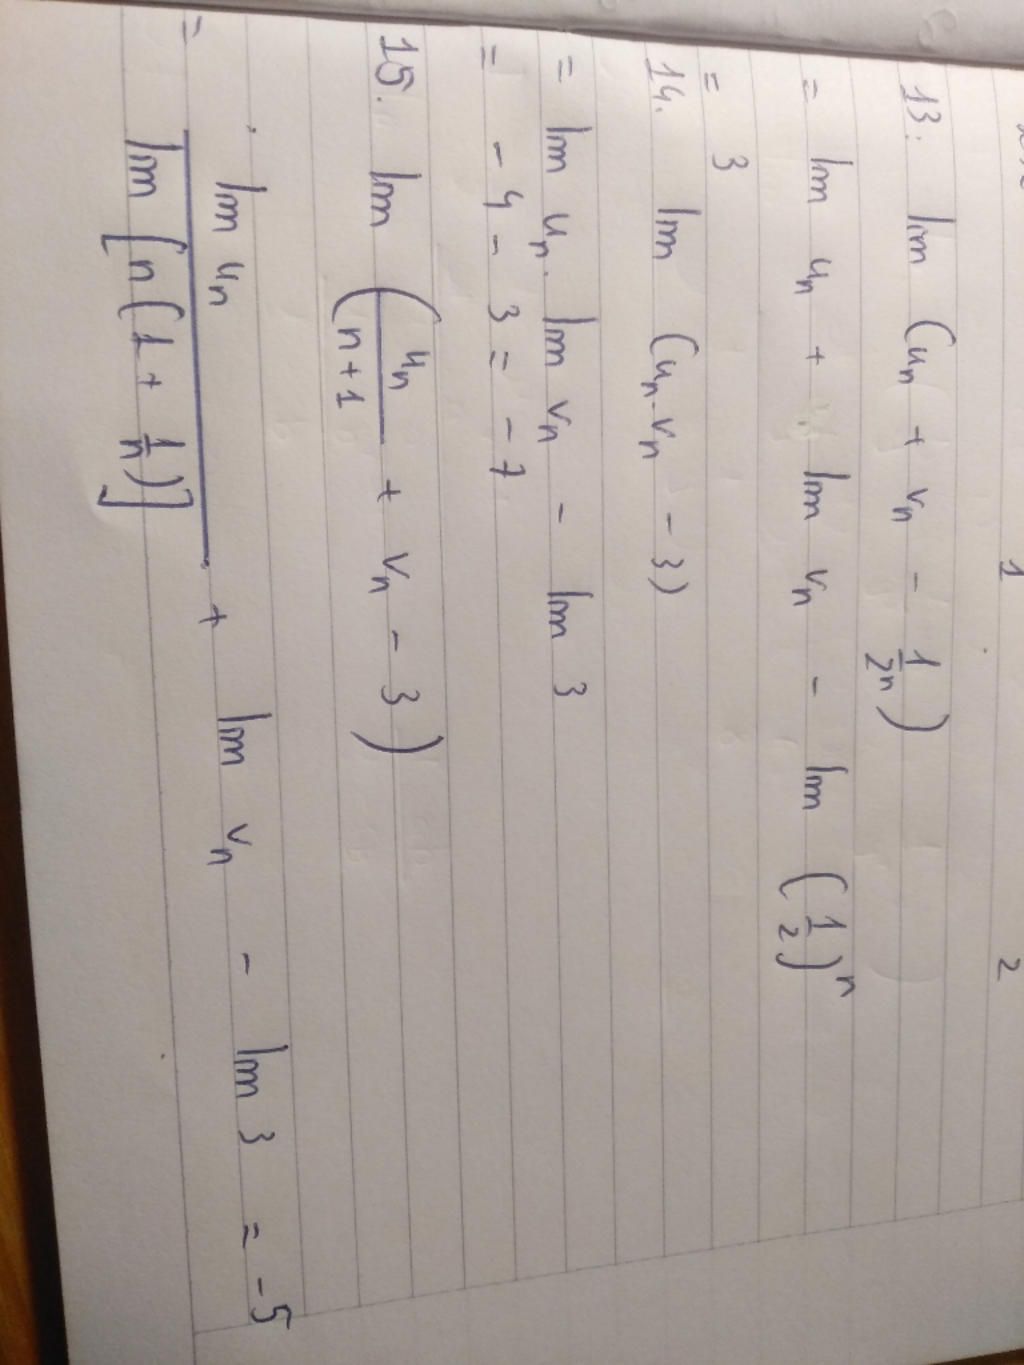 1 2
13: lim (uₙ + vₙ - 1/2ⁿ)
= lim uₙ + lim vₙ - lim (1/2)ⁿ
= 3
14. lim (uₙ.vₙ - 3)
= lim uₙ. lim vₙ - lim 3
= - 4 - 3 = - 7
15. lim (uₙ/(n+1) + vₙ - 3)
= lim uₙ / lim [n(1 + 1/n)] + lim vₙ - lim 3 = -5